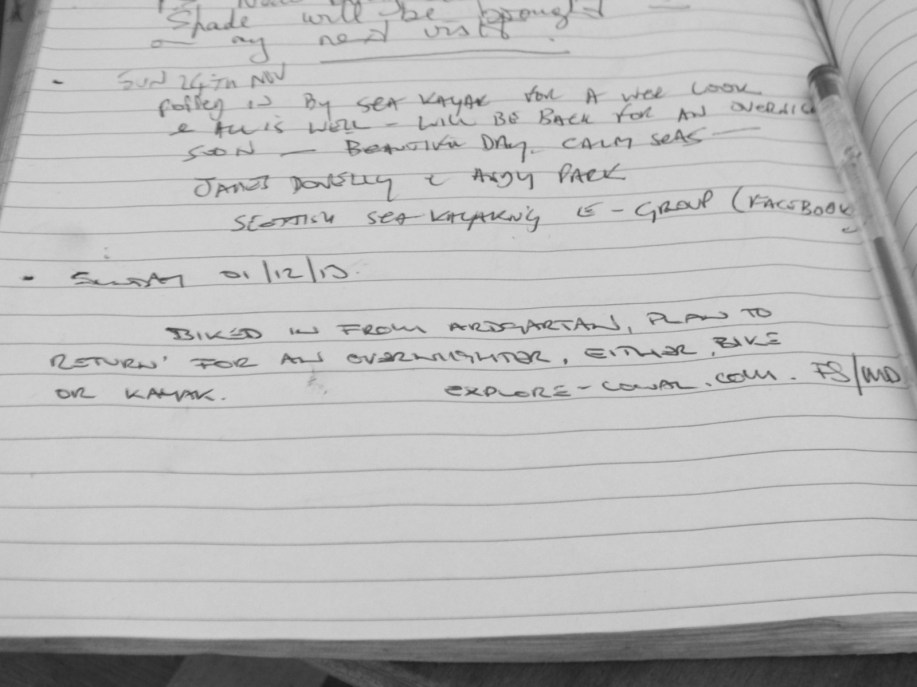 Shade will be brought
on my next visit.
- SUN 24TH NOV
POPPED IN BY SEA KAYAK FOR A WEE LOOK
& ALL IS WELL - WILL BE BACK FOR AN
SOON - BEAUTIFUL DAY. CALM SEAS
JAMES DONNELLY & ANDY PARK
SCOTTISH SEA KAYAKING E-GROUP (FACEBOOK
- SUNDAY 01/12/13.
BIKED IN FROM ARDGARTAN, PLAN TO
RETURN FOR AN OVERNIGHTER, EITHER BIKE
OR KAYAK. EXPLORE-COWAL.COM. FS/MD